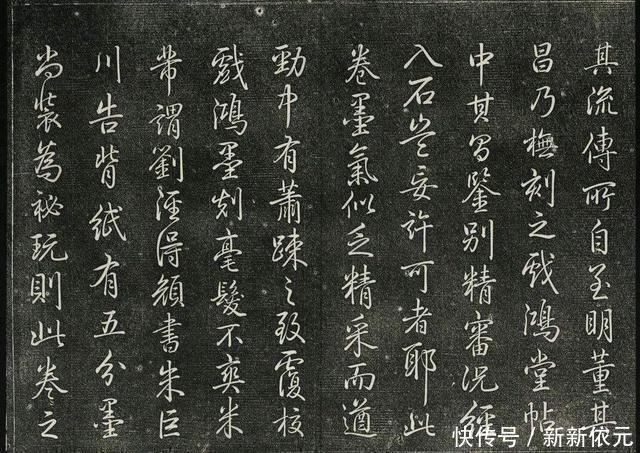 其流傳所自至明董其
昌乃橅刻之戲鴻堂帖
中其昌鑒別精審況經
入石豈妄許可者耶此
卷墨氣似乏精采而遒
勁中有蕭疎之致覆校
戲鴻墨刻毫髮不爽米
芾謂劉涇得顏書朱巨
川告背紙有五分墨
尚裝為祕玩則此卷之
快传号 / 新新侬元